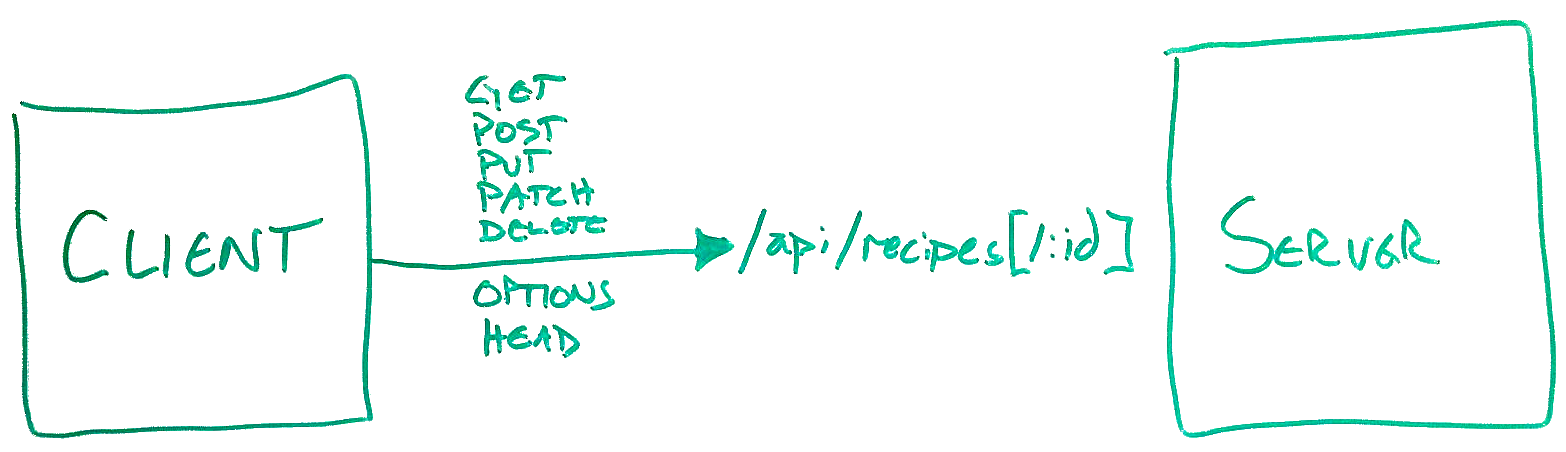 CLIENT
GET
POST
PUT
PATCH
DELETE
OPTIONS
HEAD
/api/recipes[/:id]
SERVER